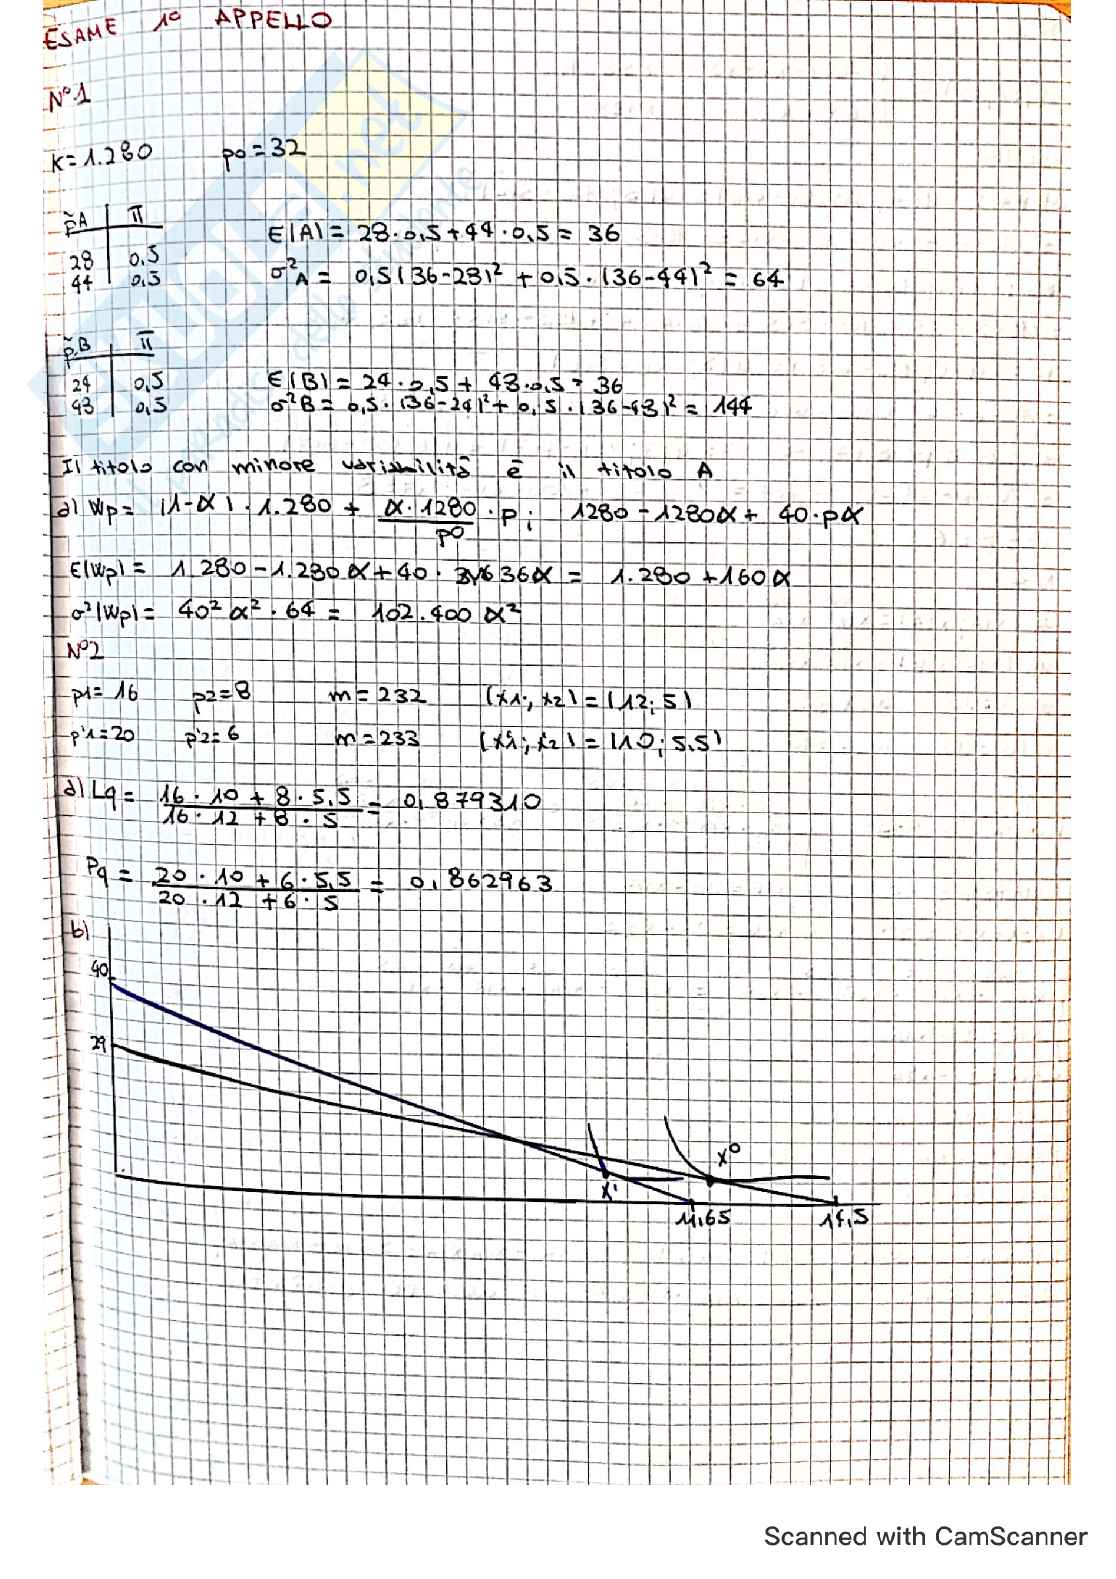 ESAME 1º APPELLO
Nº1
K=1.280 p0=32
p̃A π
28 0,5
44 0,5
E(A)= 28·0,5+44·0,5= 36
σ²A = 0,5(36-28)² + 0,5·(36-44)² = 64
p̃B π
24 0,5
48 0,5
E(B)= 24·0,5+ 48·0,5= 36
σ²B= 0,5·(36-24)²+ 0,5·(36-48)² = 144
Il titolo con minore variabilità è il titolo A
a) Wp= (1-α)·1.280 + α·1280/p0 ·p; 1280-1280α+ 40·pα
E(Wp)= 1.280-1.280α+40· 36α = 1.280+160α
σ²(Wp)= 40²α²·64= 102.400α²
Nº2
p1=16 p2=8 m=232 (x1; x2)=(12;5)
p'1=20 p'2=6 m=233 (x'1; x'2)=(10;5.5)
a) Lq= 16·10+8·5,5/16·12+8·5 = 0,879310
Pq= 20·10+6·5,5/20·12+6·5 = 0,862963
b)
40
29
x⁰
x'
11,65 14,5
Scanned with CamScanner